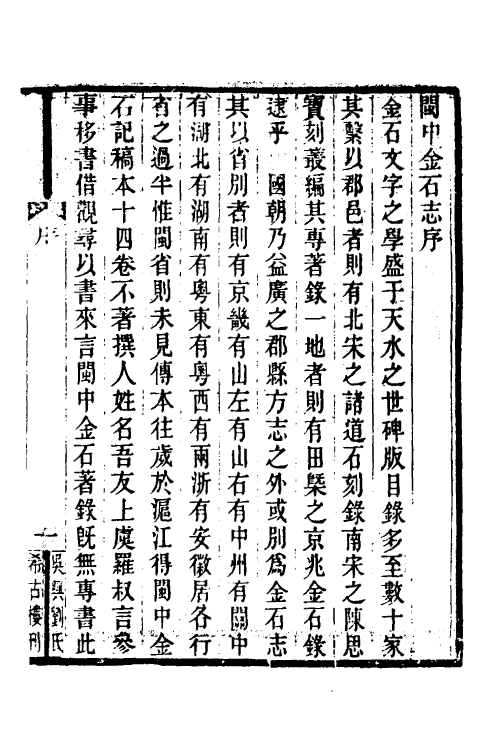 閩中金石志序
金石文字之學盛于天水之世碑版目錄多至數十家
其繫以郡邑者則有北宋之諸道石刻錄南宋之陳思
寶刻叢編其專著錄一地者則有田槩之京兆金石錄
逮乎 國朝乃益廣之郡縣方志之外或別爲金石志
其以省別者則有京畿有山左有山右有中州有關中
有湖北有湖南有粵東有粵西有兩浙有安徽居各行
省之過半惟閩省則未見傳本往歲於滬江得閩中金
石記稿本十四卷不著撰人姓名吾友上虞羅叔言參
事移書借觀尋以書來言閩中金石著錄旣無專書此
序
一
吳興劉氏
希古樓刊